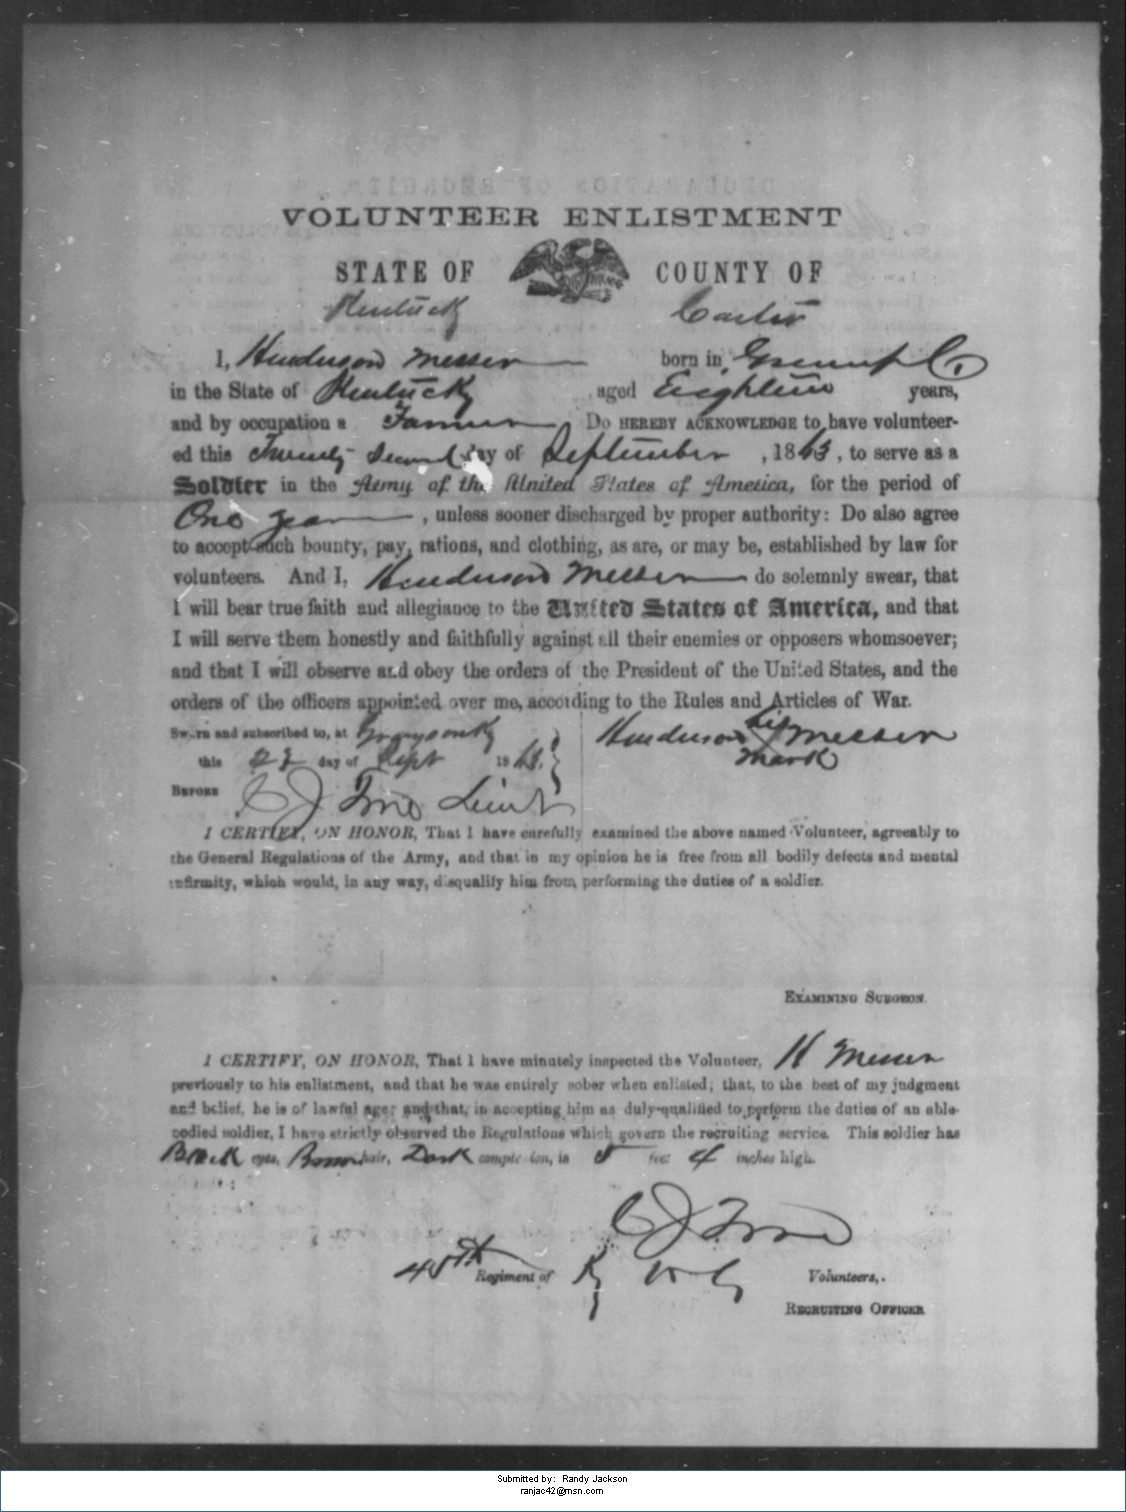 VOLUNTEER ENLISTMENT
STATE OF COUNTY OF
Kentucky Carter
I, Henderson Messer born in Greenup Co
in the State of Kentucky aged Eighteen years,
and by occupation a Farmer Do HEREBY ACKNOWLEDGE to have volunteer-
ed this Twenty Second day of September, 1863, to serve as a
Soldier in the Army of the United States of America, for the period of
One year, unless sooner discharged by proper authority: Do also agree
to accept such bounty, pay, rations, and clothing, as are, or may be, established by law for
volunteers. And I, Henderson Messer do solemnly swear, that
I will bear true faith and allegiance to the United States of America, and that
I will serve them honestly and faithfully against all their enemies or opposers whomsoever;
and that I will observe and obey the orders of the President of the United States, and the
orders of the officers appointed over me, according to the Rules and Articles of War.
Sworn and subscribed to, at Grayson Ky Henderson his X Messer
this 22 day of Sept 1863. mark
BEFORE C J Lieut
I CERTIFY, ON HONOR, That I have carefully examined the above named Volunteer, agreeably to
the General Regulations of the Army, and that in my opinion he is free from all bodily defects and mental
infirmity, which would, in any way, disqualify him from performing the duties of a soldier.
EXAMINING SURGEON.
I CERTIFY, ON HONOR, That I have minutely inspected the Volunteer, H Messer
previously to his enlistment, and that he was entirely sober when enlisted; that, to the best of my judgment
and belief, he is of lawful age; and that, in accepting him as duly-qualified to perform the duties of an able-
bodied soldier, I have strictly observed the Regulations which govern the recruiting service. This soldier has
Black eyes, Brown hair, Dark complexion, is 5 feet 4 inches high.
C J
45th Regiment of Ky Volunteers,.
RECRUITING OFFICER
Submitted by: Randy Jackson
ranjac42@msn.com